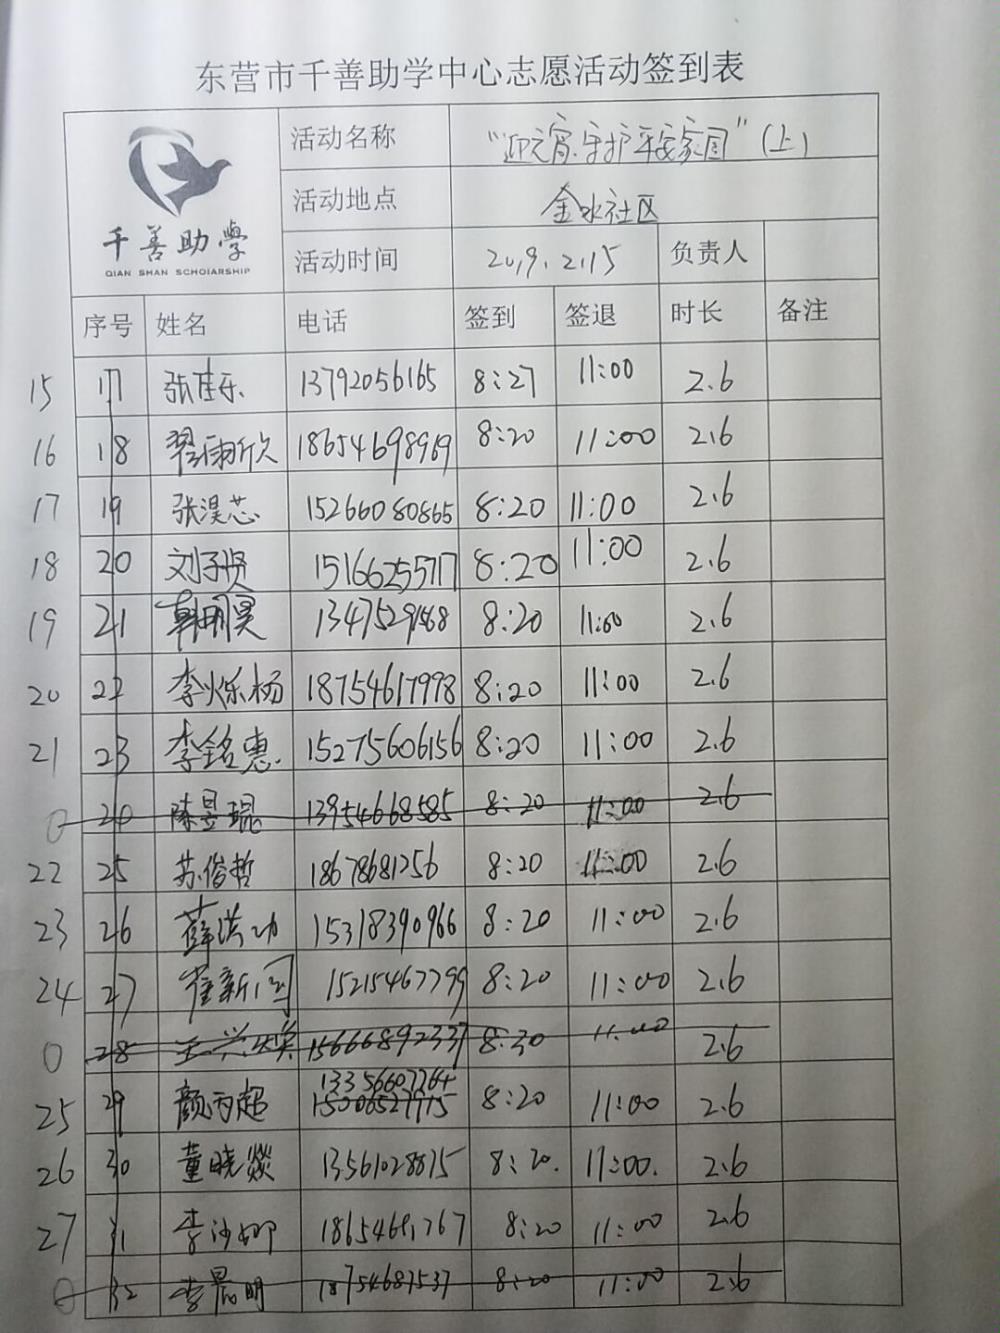 东营市千善助学中心志愿活动签到表
千善助學
QIAN SHAN SCHOIARSHIP
活动名称 “迎元宵.守护平安家园”(上)
活动地点 金水社区
活动时间 2019.2.15 负责人
序号 姓名 电话 签到 签退 时长 备注
15 17 张佳乐 13792056165 8:27 11:00 2.6
16 18 翟雨欣 18654698969 8:20 11:00 2.6
17 19 张淏芯 15266080865 8:20 11:00 2.6
18 20 刘子贤 15166255717 8:20 11:00 2.6
19 21 韩明昊 8:20 11:00 2.6
20 22 李烁杨 18754617998 8:20 11:00 2.6
21 23 李铭惠 15275606156 8:20 11:00 2.6
0 24 陈昱琨 13954668585 8:20 11:00 2.6
22 25 苏俊哲 18678681256 8:20 11:00 2.6
23 26 薛洪功 15318390966 8:20 11:00 2.6
24 27 崔新 15215467799 8:20 11:00 2.6
0 28 王兴 15666892337 8:30 11:00 2.6
25 29 颜丙超 13356607264 8:20 11:00 2.6
15006527915
26 30 董晓燚 13561028875 8:20. 11:00. 2.6
27 31 李沙娜 18654691767 8:20 11:00 2.6
0 32 李晨明 18754687537 8:20 11:00 2.6